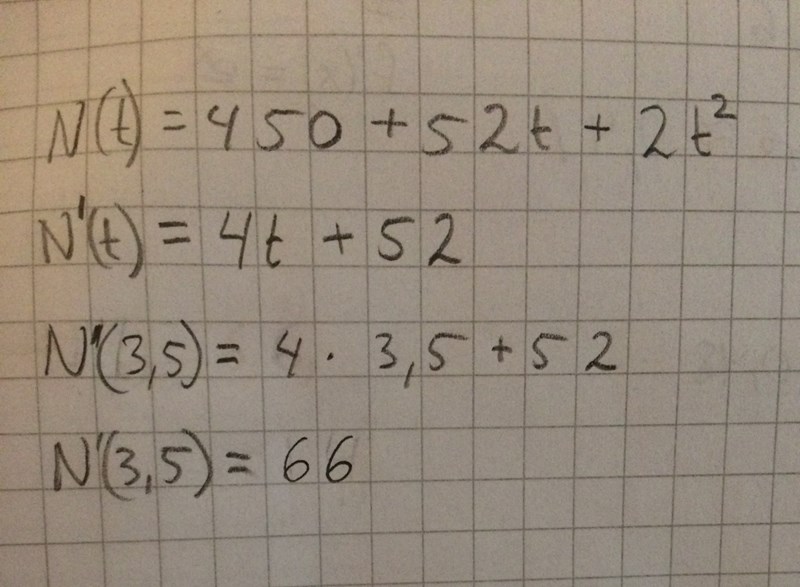 N(t) = 450 + 52t + 2t²
N'(t) = 4t + 52
N'(3,5) = 4 · 3,5 + 52
N'(3,5) = 66